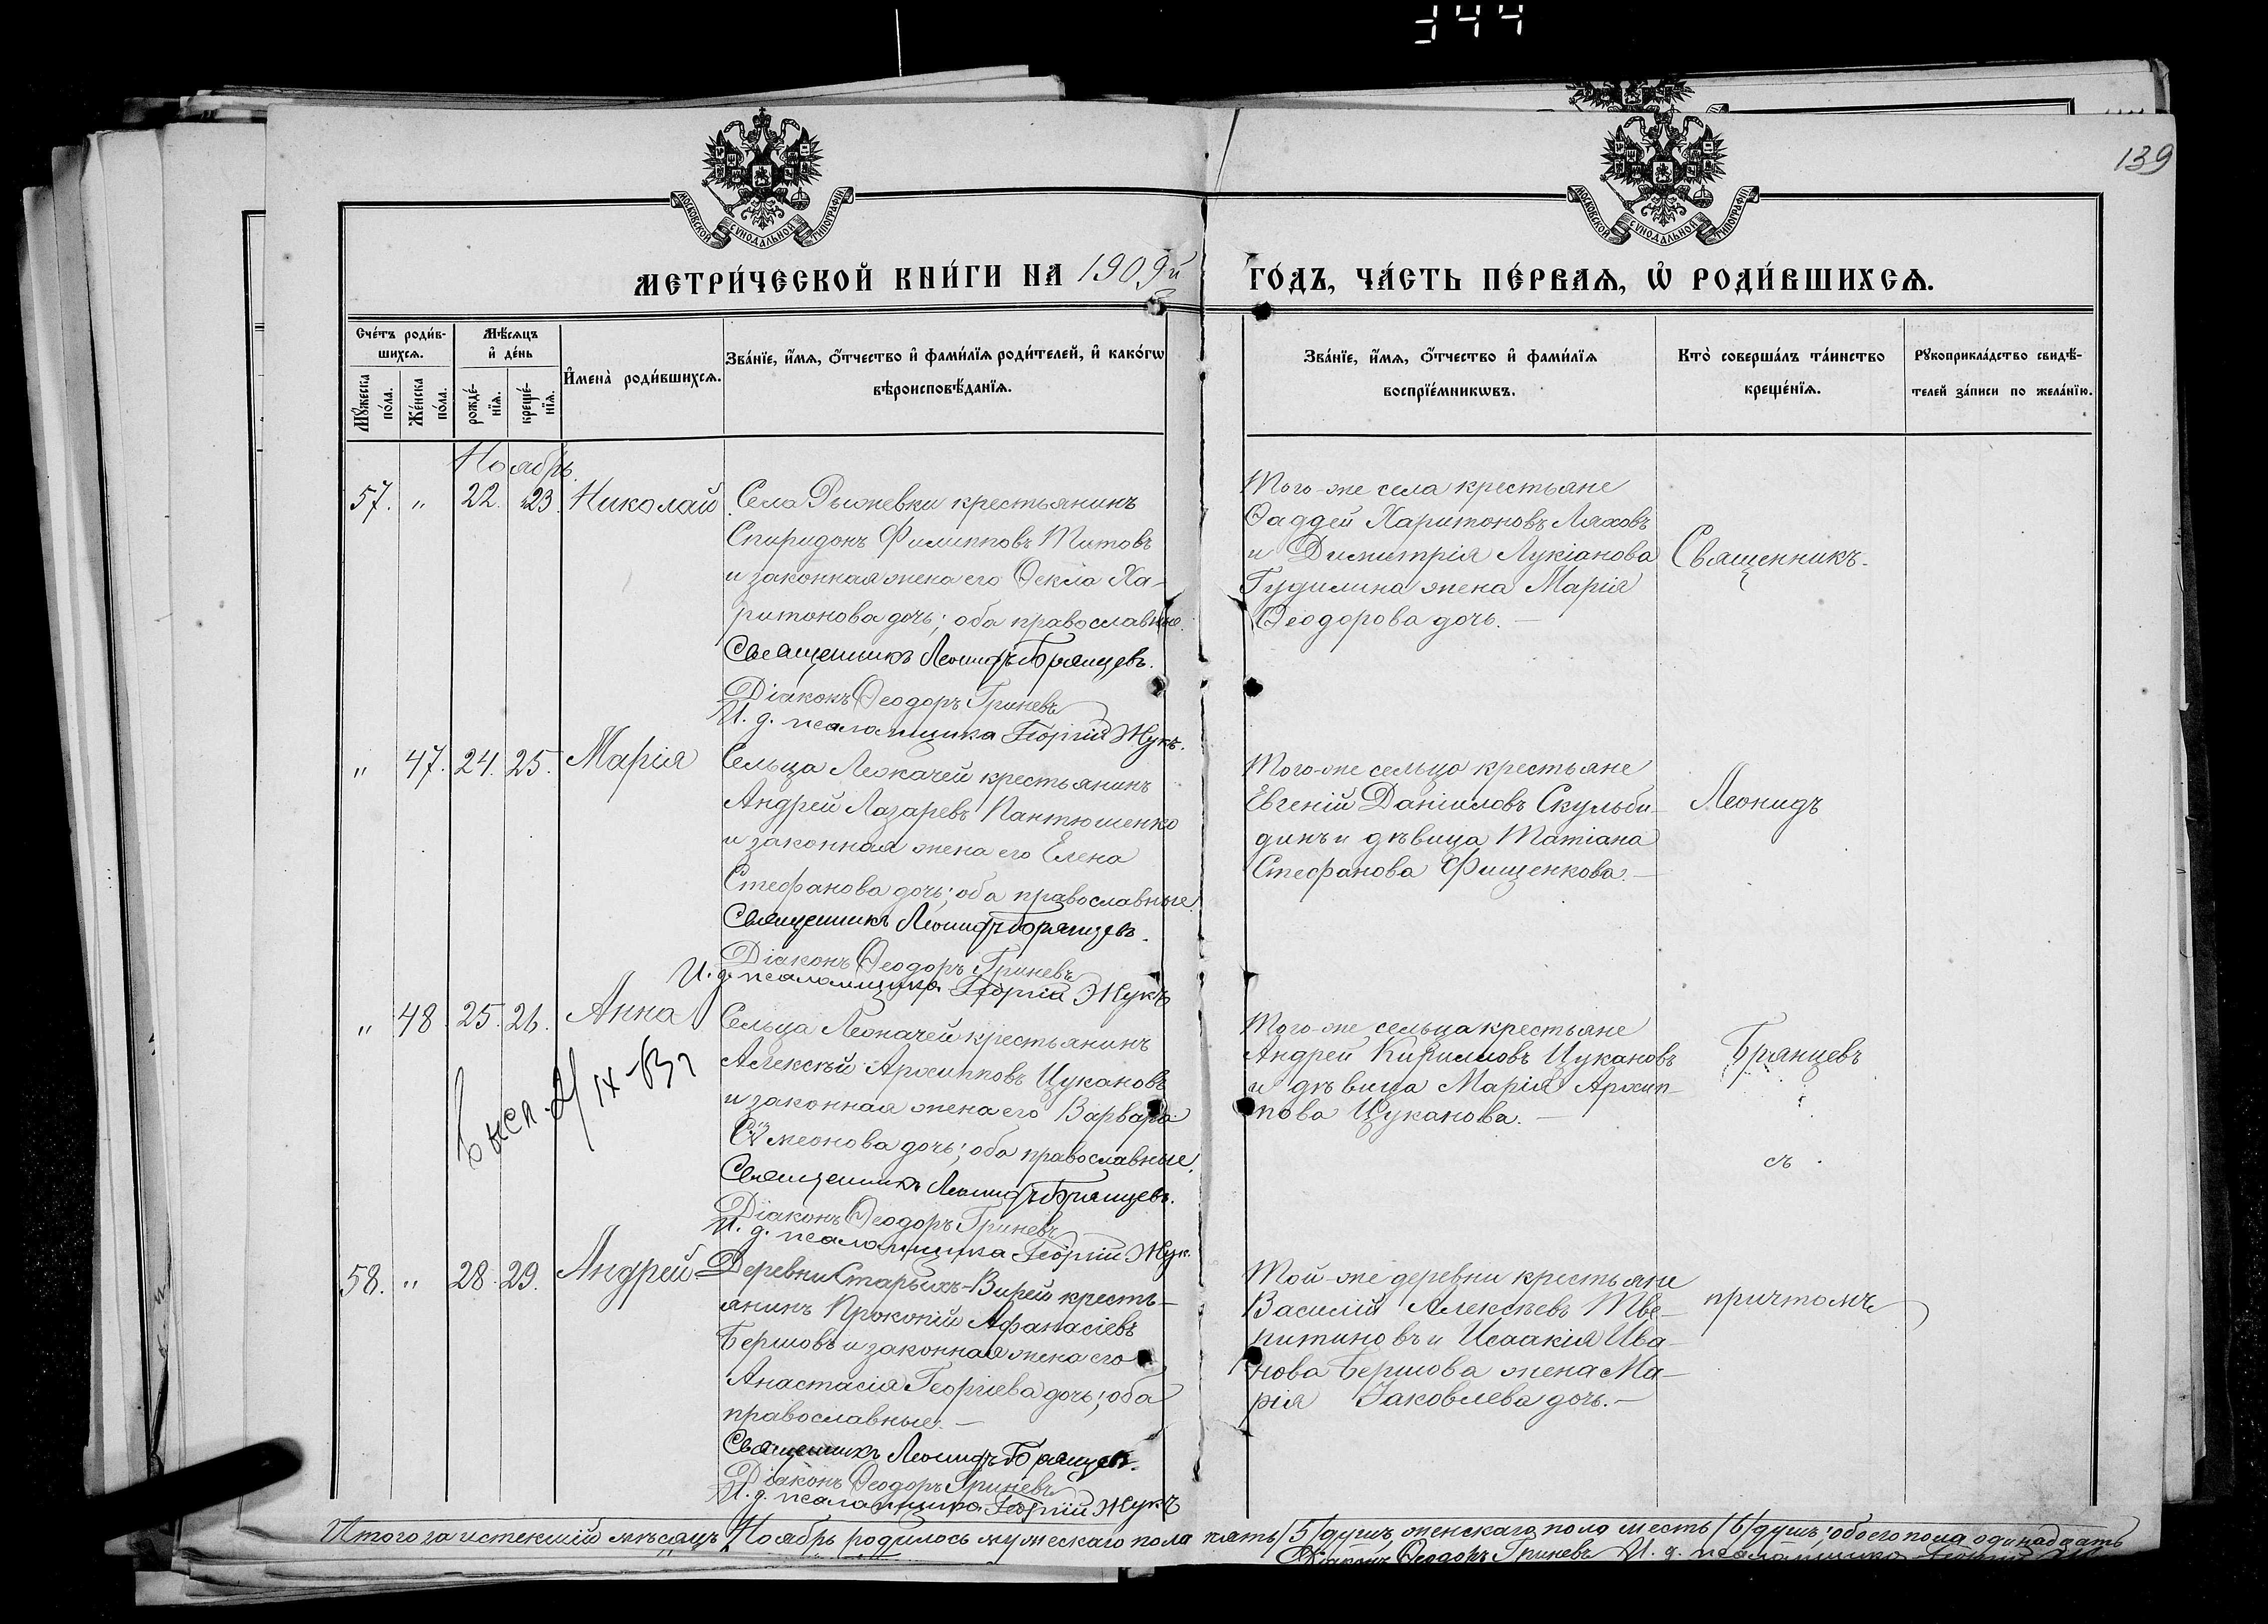 344
139
МОСКОВСКОЙ СУНОДАЛЬНОЙ ТИПОГРАФІИ
МОСКОВСКОЙ СУНОДАЛЬНОЙ ТИПОГРАФІИ
МЕТРИ́ЧЕСКОЙ КНИ́ГИ НА 1909й ГО́ДЪ, ЧА́СТЬ ПЕ́РВАѦ, Ѡ҆ РОДИ́ВШИХСѦ.
Сче́тъ роди́в-
шихсѧ.
Мѣ́сѧцъ
и҆ де́нь
Мꙋ́жеска по́ла.
Же́нска по́ла.
рожде́-
нїѧ.
креще́-
нїѧ.
И҆мена̀ роди́вшихсѧ.
Зва́нїе, и҆́мѧ, ѻ҆́тчество и҆ фами́лїѧ роди́телей, и҆ како́гѡ
вѣроисповѣ́данїѧ.
Зва́нїе, и҆́мѧ, ѻ҆́тчество и҆ фами́лїѧ
воспрїе́мникѡвъ.
Кто̀ соверша́лъ та́инство
креще́нїѧ.
Рꙋкоприкла́дство свидѣ́-
телей за́писи по жела́нїю.
Ноябрь.
57. " 22. 23. Николай
Села Рыжевки крестьянинъ
Спиридонъ Филипповъ Титовъ
и законная жена его Ѳекла Ха-
ритонова дочь; оба православные.
Священникъ Леонидъ Брянцевъ.
Діаконъ Ѳеодоръ Гриневъ
И. д. псаломщика Георгій Жукъ.
Того-же села крестьяне
Ѳаддей Харитоновъ Ляховъ
и Димитрія Лукіанова
Гудилина жена Марія
Ѳеодорова дочь. —
Священникъ.
" 47. 24. 25. Марія
Сельца Леокачей крестьянинъ
Андрей Лазаревъ Пантюшенко
и законная жена его Елена
Стефанова дочь; оба православные.
Священникъ Леонидъ Брянцевъ.
Діаконъ Ѳеодоръ Гриневъ
И. д. псаломщика Георгій Жукъ
Того-же сельца крестьяне
Евгеній Даніиловъ Скульби-
динъ и дѣвица Татіана
Стефанова Фищенкова. —
Леонидъ
" 48. 25. 26. Анна
Сельца Леокачей крестьянинъ
Алексѣй Архипповъ Цукановъ
и законная жена его Варвара
Сѵмеонова дочь; оба православные.
Священникъ Леонидъ Брянцевъ.
Діаконъ Ѳеодоръ Гриневъ
И. д. псаломщика Георгій Жукъ.
Того-же сельца крестьяне
Андрей Кирилловъ Цукановъ
и дѣвица Марія Архип-
пова Цуканова. —
Брянцевъ
съ
58. " 28. 29. Андрей
Деревни Старыхъ-Вирей кресть-
янинъ Прокопій Аѳанасіевъ
Бершовъ и законная жена его
Анастасія Георгіева дочь; оба
православные. —
Священникъ Леонидъ Брянцевъ.
Діаконъ Ѳеодоръ Гриневъ
И. д. псаломщика Георгій Жукъ
Той-же деревни крестьяне
Василій Алексѣевъ Тве-
ритиновъ и Исаакія Ива-
нова Бершова жена Ма-
рія Іаковлева дочь. —
причтомъ
Итого за истекшій мѣсяцъ Ноябрь родилось мужескаго пола пять /5/ душъ, женскаго пола шесть /6/ душъ; обоего пола одинадцать
Діаконъ Ѳеодоръ Гриневъ И. д. псаломщика Георгій